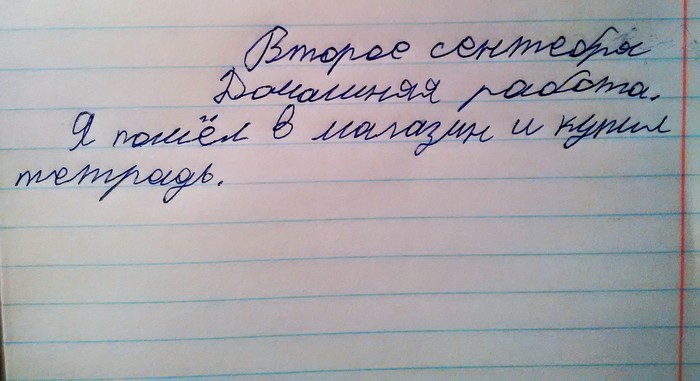 Второе сентября
Домашняя работа.
Я пошёл в магазин и купил
тетрадь.